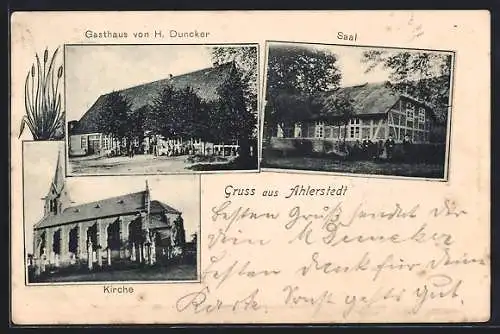 Gasthaus von H. Duncker
Saal
Gruss aus Ahlerstedt
Kirche
Besten Gruß sendet dir
dein
besten Dank für deine
Karte. Sonst gehts gut.